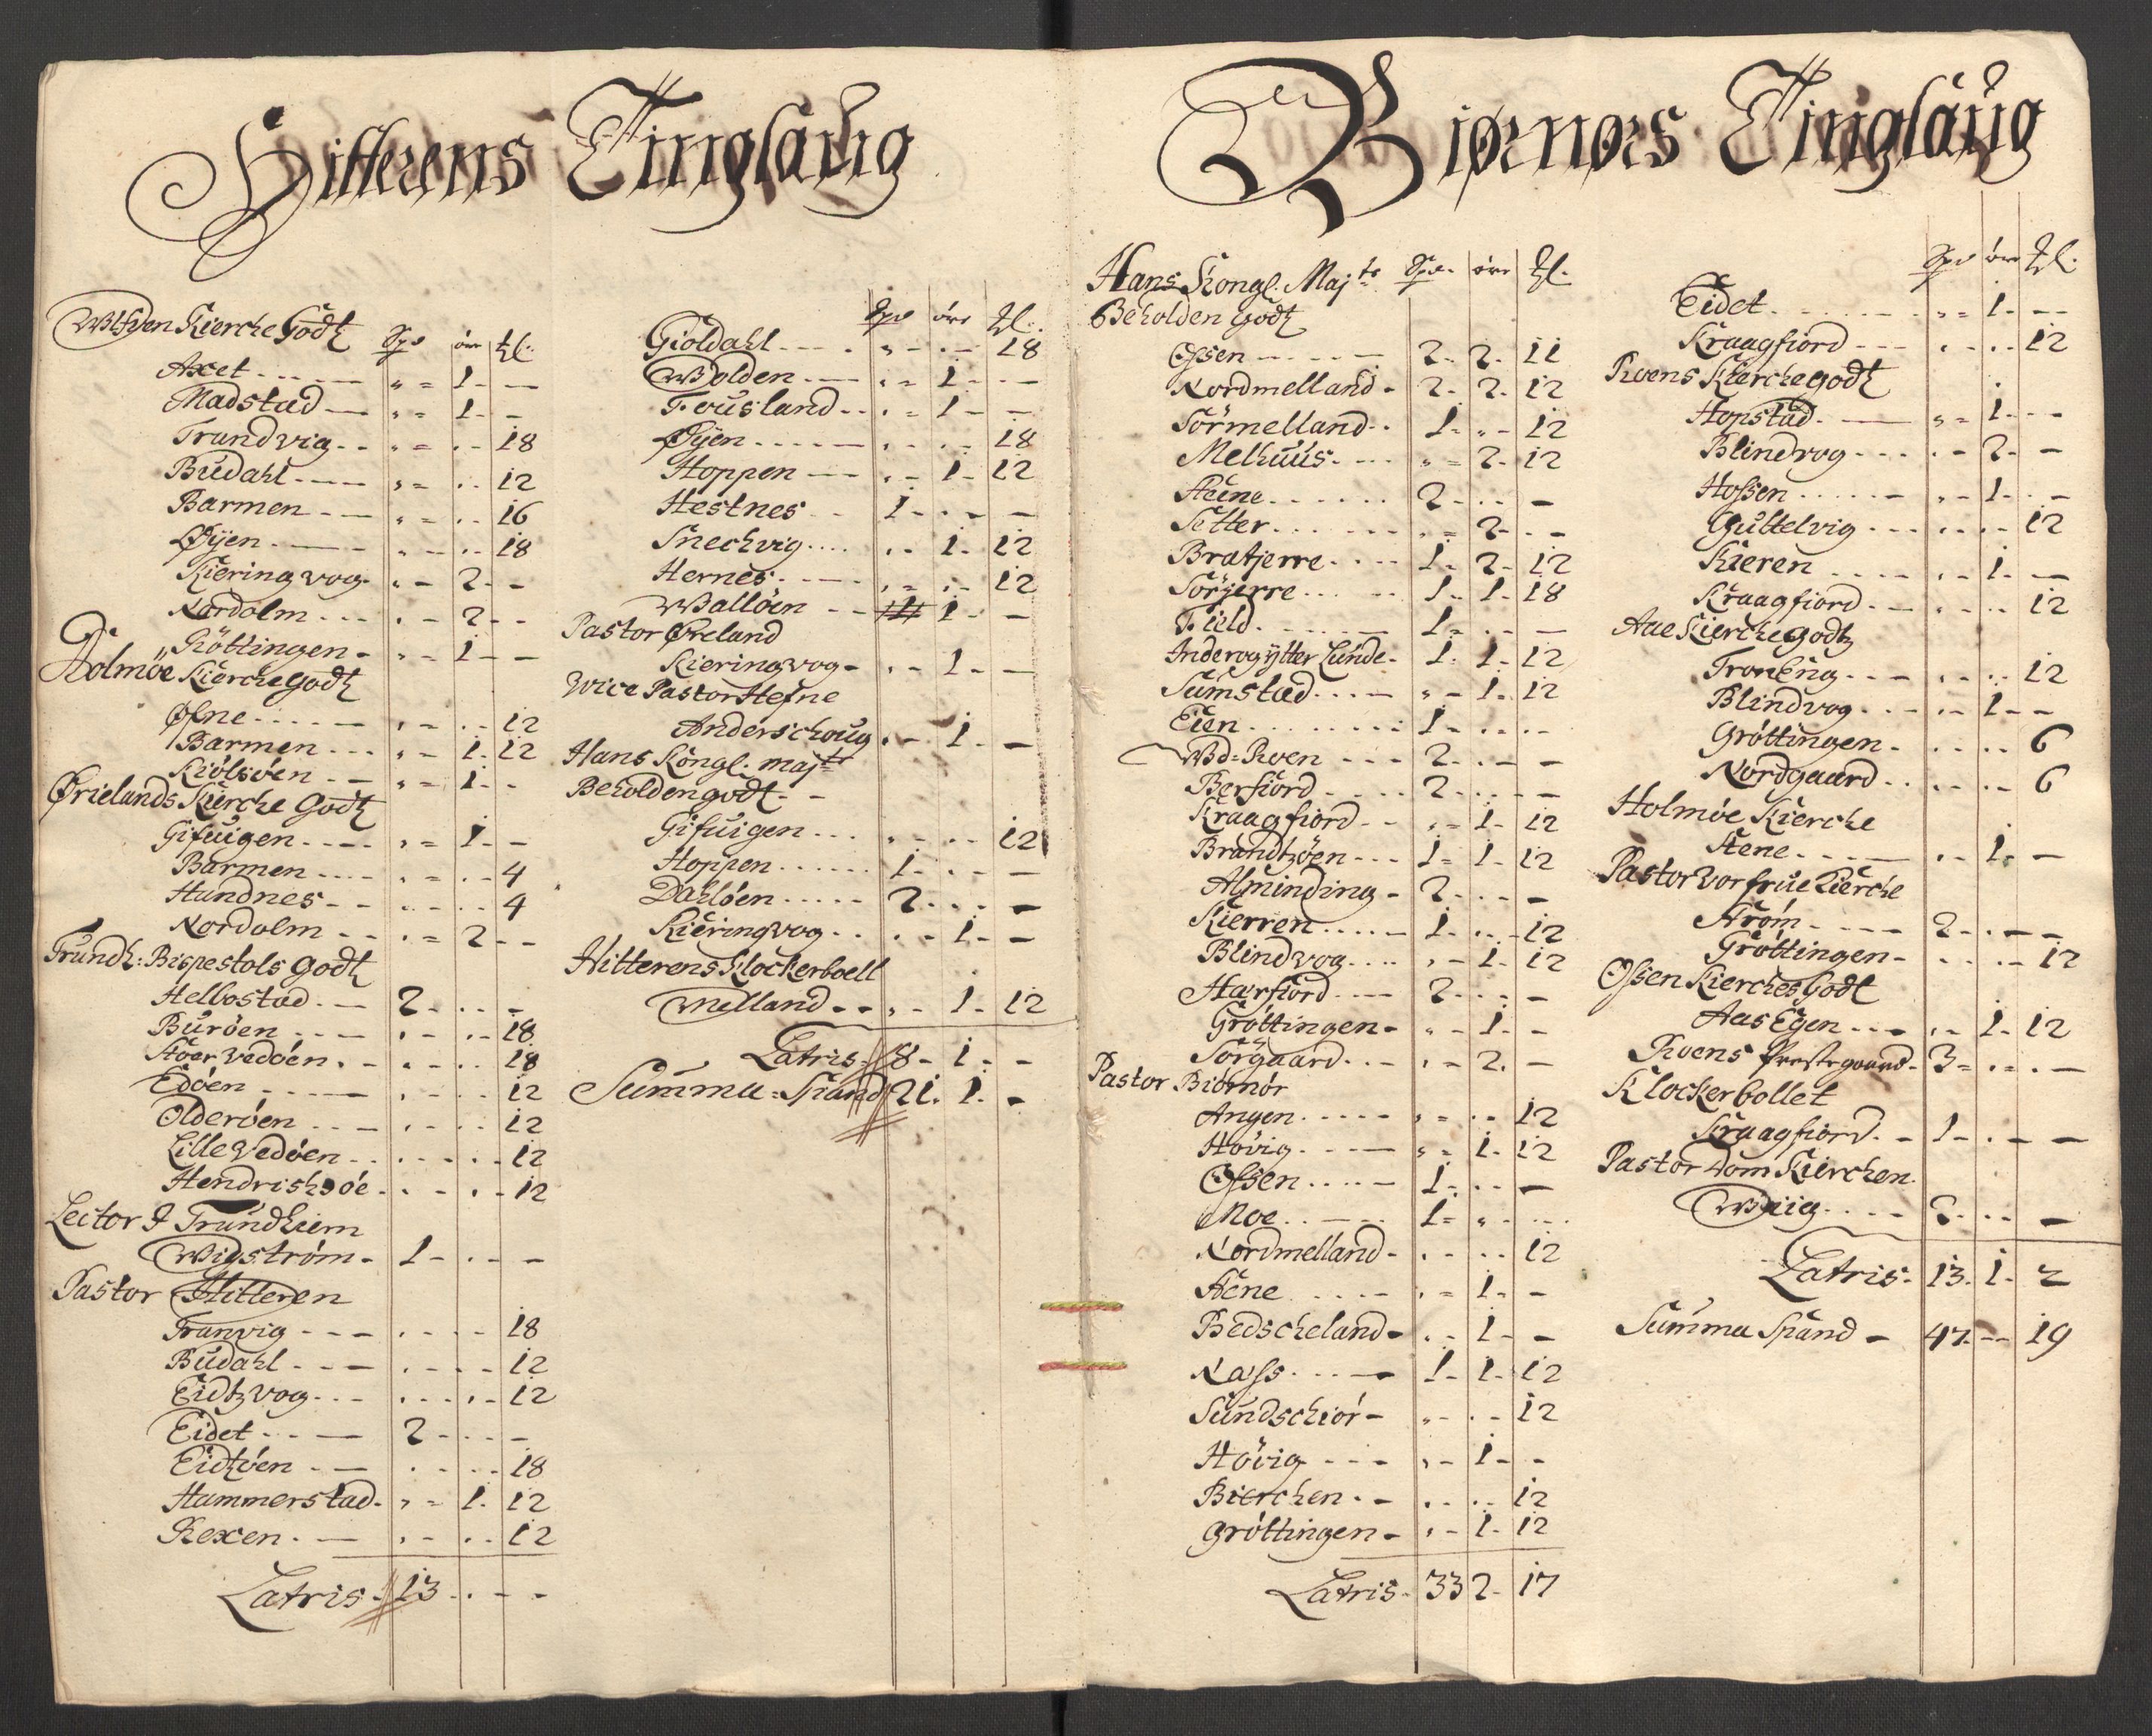 Hitterens Tinglaug
Wlfden Kierche Godtz Spd øre ₰l.
Axet - - - - 1 - -
Madstad - - - 1 - -
Trandvig - - - - 18
Budahl - - - - 12
Barmen - - - - 16
Øyen - - - - 18
Kieringvog - - 2 - -
Nordolm - - - 2 - -
Gröttingen - - - 1 - -
Holmöe Kierche godtz
Øfne - - - - 12
Barmen - - - 1 - 12
Kiölsöen - - - 1 - -
Ørielands Kierche Godtz
Gifuigen - - - 1 - -
Barmen - - - - 4
Hundnes - - - - 4
Nordolm - - - 2 - -
Trundh: Bispestols Godtz
Helbostad - - 2 - - -
Buröen - - - - 18
Stoer Vedöen - - - 18
Edöen - - - - 12
Olderöen - - - - 12
Lille Vedöen - - - 12
Hendrichsöe - - - 12
Lector I Trundhiem
Wigström - 1 - - -
Pastor Hitteren
Tranvig - - - - 18
Budahl - - - - 12
Eidtzvog - - - - 12
Eidet - - 2 - - -
Eidtöen - - - - 18
Hammerstad - - 1 - 12
Rexen - - - - 12
Latris - 13 - - -
Spd øre ₰l.
Gioldahl - - - - 18
Wolden - - - 1 - -
Fousland - - - 1 - -
Øyen - - - - 18
Hoppen - - - 1 - 12
Hestnes - - 1 - - -
Snechvig - - - 1 - 12
Hernes - - - - 12
Wallöen - - 1 - -
Pastor Øreland
Kieringvog - - 1 - -
Wice Pastor Hefne
Anderschoug - - 1 - -
Hans Kongl. majts
Beholden godt - -
Gifuigen - - - - 12
Hoppen - - 1 - - -
Dahlöen - - 2 - - -
Kieringvog - - - 1 - -
Hitterens Klockerboell
Melland - - - 1 - 12
Latris - 8 - 1 - -
Summa = Spand 21. 1. -
Biørnørs Tinglaug
Hans Kongl. Majts Spd. øre ₰l.
Beholden Godtz
Ossen - - 2 - 2 - 11
Nordmelland - 2 - 2 - 12
Sörmelland - 1 - - 12
Melhuus - - - 2 - 12
Steine - - 2 - - -
Setter - - - 2 - -
Bratjerre - - 1 - 2 - 12
Sörjerre - - 1 - 1 - 18
Field - - 1 - - -
Inderog ytter Lunde - 1 - 1 - 12
Sumstad - - - 1 - 12
Eien - - 1 - - -
Wd = Roen - - 2 - - -
Berfiord - - 2 - - -
Kraagfiord - - - 1 - 12
Brandtzöen - - 1 - 1 - 12
Alminding - 2 - - -
Kierren - - 1 - - 12
Blindvog - - - 1 - 12
Harfiord - - 2 - - -
Gröttingen - - - 1 - -
Sörgaard - - - 2 - -
Pastor Biörnör
Angen - - - - 12
Hövig - - - 1 - 12
Ossen - - 1 - - -
Moe - - 1 - - -
Nordmelland - - - 12
Stene - - - 1 - -
Bedscheland - - - 1 - -
Næss - - 1 - 1 - 12
Sundschiör - - - - 12
Hövig - - - 1 - -
Bierchen - - - - 12
Gröttingen - - - 1 - 12
Latris - 33 2 - 17
Spd øre ₰l.
Eidet - - - 1 - -
Kraagfiord - - - - 12
Roens Kierche godtz
Hopstad - - - 1 - -
Blindvog - - - 2 - -
Hossen - - - 1 - -
Guttelvig - - - - 12
Kieren - - - 1 - -
Kraagfiord - - - - 12
Aae Kierche godtz
Troneng - - - - 12
Blindvog - - - 1 - -
Gröttingen - - - - 6
Nordgaard - - - - 6
Holmöe Kierche
Stene - - - 1 - -
Pastor Vor frue Kierche
Ström - - 2 - - -
Gröttingen - - - - 12
Ossen Kierches Godt
Aas Egen - - - 1 - 12
Roens Prestegaard - 3 - - -
Klockerbollet
Kraagfiord - - 1 - - -
Pastor Dom Kierchen
Wiig - - 2 - - -
Latris - 13. 1 - 2
Summa Spand - 47 - - 19